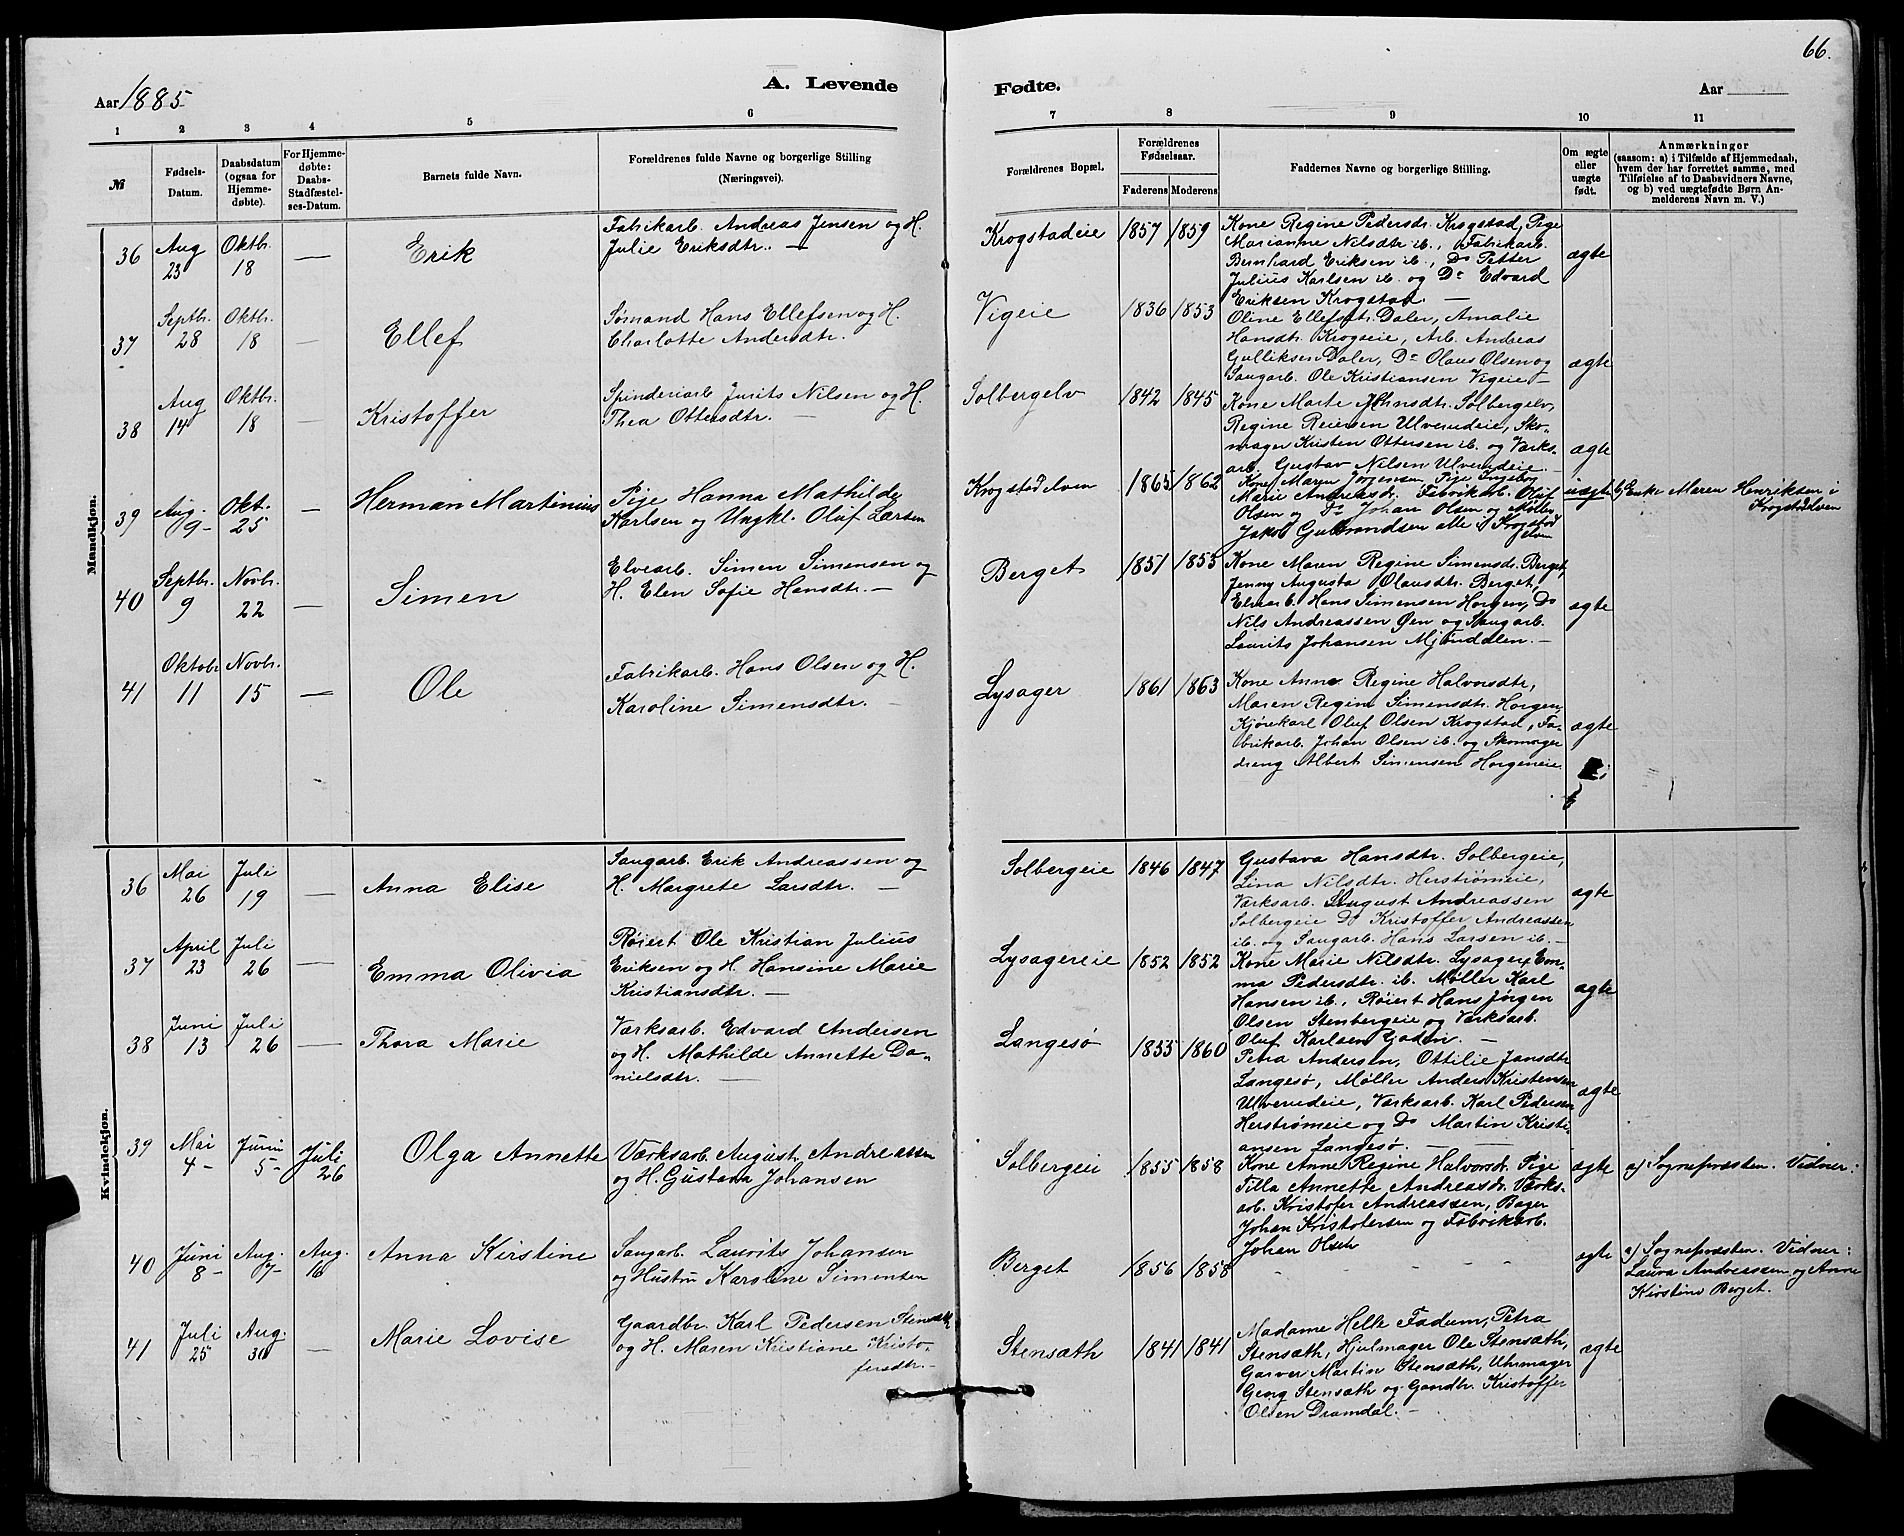 66.
A. Levende Fødte.
Aar 1885
Aar
1 2 3 4 5 6 7 8 9 10 11
№
Fødsels-Datum.
Daabsdatum (ogsaa for Hjemme-døbte).
For Hjemme-døbte: Daabs-Stadfæstel-ses-Datum.
Barnets fulde Navn.
Forældrenes fulde Navne og borgerlige Stilling
(Næringsvei).
Forældrenes Bopæl.
Forældrenes Fødselsaar.
Faderens Moderens
Faddernes Navne og borgerlige Stilling.
Om ægte eller uægte født.
Anmærkninger
(saasom: a) i Tilfælde af Hjemmedaab,
hvem der har forrettet samme, med
Tilføielse af to Daabsvidners Navne,
og b) ved uægtefødte Børn An-
melderens Navn m. V.)
Mandkjøn.
36 Aug 23 Oktb. 18 — Erik
Fabrikarb. Andreas Jensen og H.
Julie Eriksdtr. —
Krogstadeie 1857 1859
Kone Regine Pedersdr. Krogstad, Pige
Marianne Nilsdtr ib., Fabrikarb.
Bernhard Eriksen ib., Do Petter
Julius Karlsen ib. og Do Edvard
Eriksen Krogstad. —
ægte
37 Septbr. 28 Oktbr. 18 — Ellef
Sømand Hans Ellefsen og H.
Charlotte Andersdtr. —
Vigeie 1836 1853
Oline Ellefsdtr. Daler, Amalie
Hansdtr. Krogseie, Arb. Andreas
Gulliksen Daler, Do Olaus Olsen og
Saugarb. Ole Kristiansen Vigeie —
ægte
38 Aug 14 Oktbr. 18 — Kristoffer
Spinderiarb. Jurits Nilsen og H.
Thea Ottersdtr. —
Solbergelv 1842 1845
Kone Marte Johnsdtr. Solbergelv,
Regine Reiersen Ulverudeie, Sko-
mager Kristen Ottersen ib. og Værks-
arb. Gustav Nilsen Ulverudeie. —
ægte
39 Aug. 9- Okt. 25 — Herman Martinius
Pige Hanna Mathilde
Karlsen og Ungkl. Oluf Larsen
Krogstadelven 1865 1862
Kone Maren Jørgensen, Pige Ingeborg
Marie Andreasdr. Fabrikarb. Oluf
Olsen og Do Johan Olsen og Møller
Jakob Gulbrandsen alle i Krogstad
elven
uægte
b) Enke Maren Henriksen i
Krogstadelven
40 Septbr. 9 Novbr. 22 — Simen
Elvearb. Simen Simensen og
H. Elen Sofie Hansdtr. —
Berget 1851 1855
Kone Maren Regine Simensdr. Berget,
Jenny Augusta Olausdtr. Berget,
Elvearb. Hans Simensen Horgen, Do
Nils Andreassen Øen og Saugarb.
Laurits Johansen Mjøndalen. —
ægte
41 Oktobr 11 Novbr. 15 — Ole
Fabrikarb. Hans Olsen og H.
Karoline Simensdtr. —
Lysager 1861 1863
Kone Anne Regine Halvorsdtr,
Maren Regine Simensdtr. Horgen,
Kjørekarl Oluf Olsen Krogstad, Fa-
brikarb. Johan Olsen ib. og Skomager
dreng Albert Simensen Horgeneie.
ægte
Kvindekjøn.
36 Mai 26 Juli 19 — Anna Elise
Saugarb. Erik Andreassen og
H. Margrete Larsdtr. —
Solbergeie 1846 1847
Gustava Hansdtr. Solbergeie,
Lina Nilsdtr. Herstrømeie,
Værksarb. August Andreassen
Solbergeie Do Kristoffer Andreassen
ib. og Saugarb. Hans Larsen ib. —
ægte
37 April 23 Juli 26 — Emma Olivia
Røiert Ole Kristian Julius
Eriksen og H. Hansine Marie
Kristiansdtr. —
Lysagereie 1852 1852
Kone Marie Nilsdtr. Lysager, Em-
ma Pedersdtr. ib. Møller Karl
Hansen ib., Røiert Hans Jørgen
Olsen Stenbergeie og Værksarb.
Oluf Karlsen Gaden. —
ægte
38 Juni 13 Juli 26 — Thora Marie
Værksarb. Edvard Andersen
og H. Mathilde Annette Da-
nielsdtr. —
Langesø 1855 1860
Petra Andersen, Ottilie Jansdtr
Langesø, Møller Anders Kristensen
Ulverudeie, Værksarb. Karl Pedersen
Herstrømeie og Do Martin Kristi-
ansen Langesø. —
ægte
39 Mai 4- Juni 5- Juli 26 Olga Annette
Værksarb. August Andreassen
og H. Gustava Johansen
Solbergeie 1855 1858
Kone Anne Regine Halvorsdr. Pige
Tilla Annette Andreasdr. Værks-
arb. Kristofer Andreassen, Bager
Johan Kristofersen og Fabrikarb.
Johan Olsen
ægte
a) Sognepræsten. Vidner:
40 Juni 8- Aug. 7- Aug. 16 Anna Kirstine
Saugarb. Laurits Johansen
og Hustru Karoline Simensen
Berget 1856 1858
- - - - -
ægte
a) Sognepræsten. Vidner:
Laura Andreassen og Anne
Kirstine Berget.
41 Juli 25 Aug. 30 — Marie Lovise
Gaardbr. Karl Pedersen Stensæth
og H. Maren Kristiane Kristo-
fersdtr. —
Stensæth 1841 1841
Madame Helle Fadum, Petra
Stensæth, Hjulmager Ole Stensæth,
Garver Martin Stensæth, Uhrmager
Georg Stensæth og Gaardbr. Kristoffer
Olsen Dramdal. —
ægte